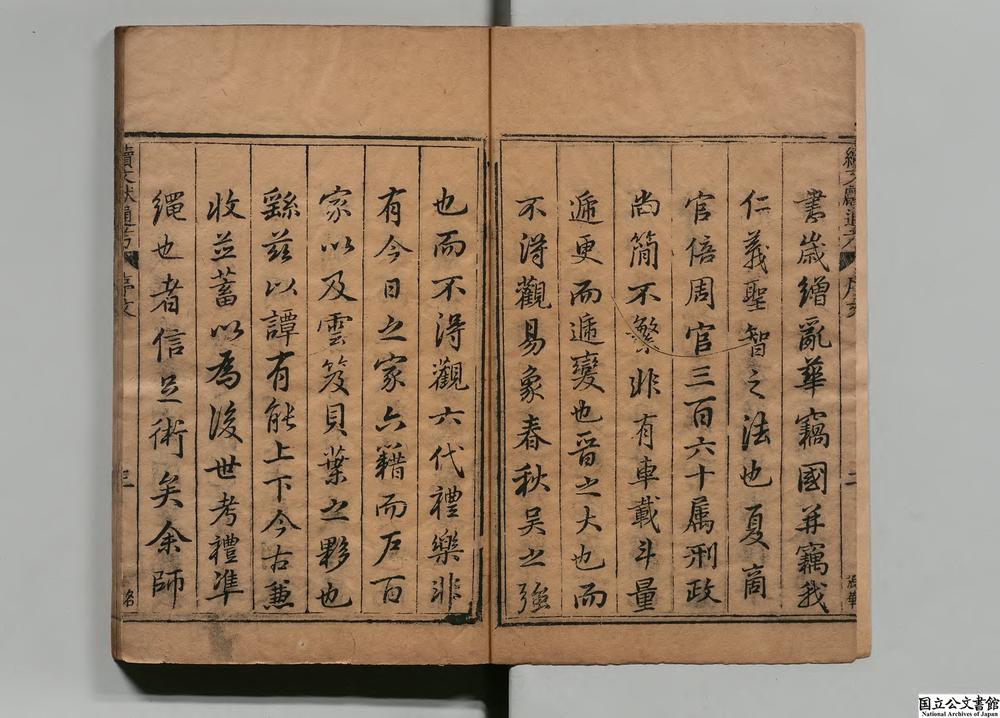 書歲繒亂華竊國并竊我
仁義聖智之法也夏商
官倍周官三百六十属刑政
尚簡不繁非有車載斗量
遞更而遞變也晋之大也而
不得觀易象春秋吴之強
也而不得觀六代禮樂非
有今日之家六籍而戶百
家以及雲笈貝葉之夥也
繇茲以譚有能上下今古兼
收並蓄以為後世考禮準
繩也者信足術矣余師
續文獻通考 序文 二
續文獻通考 序文 三
国立公文書館
National Archives of Japan